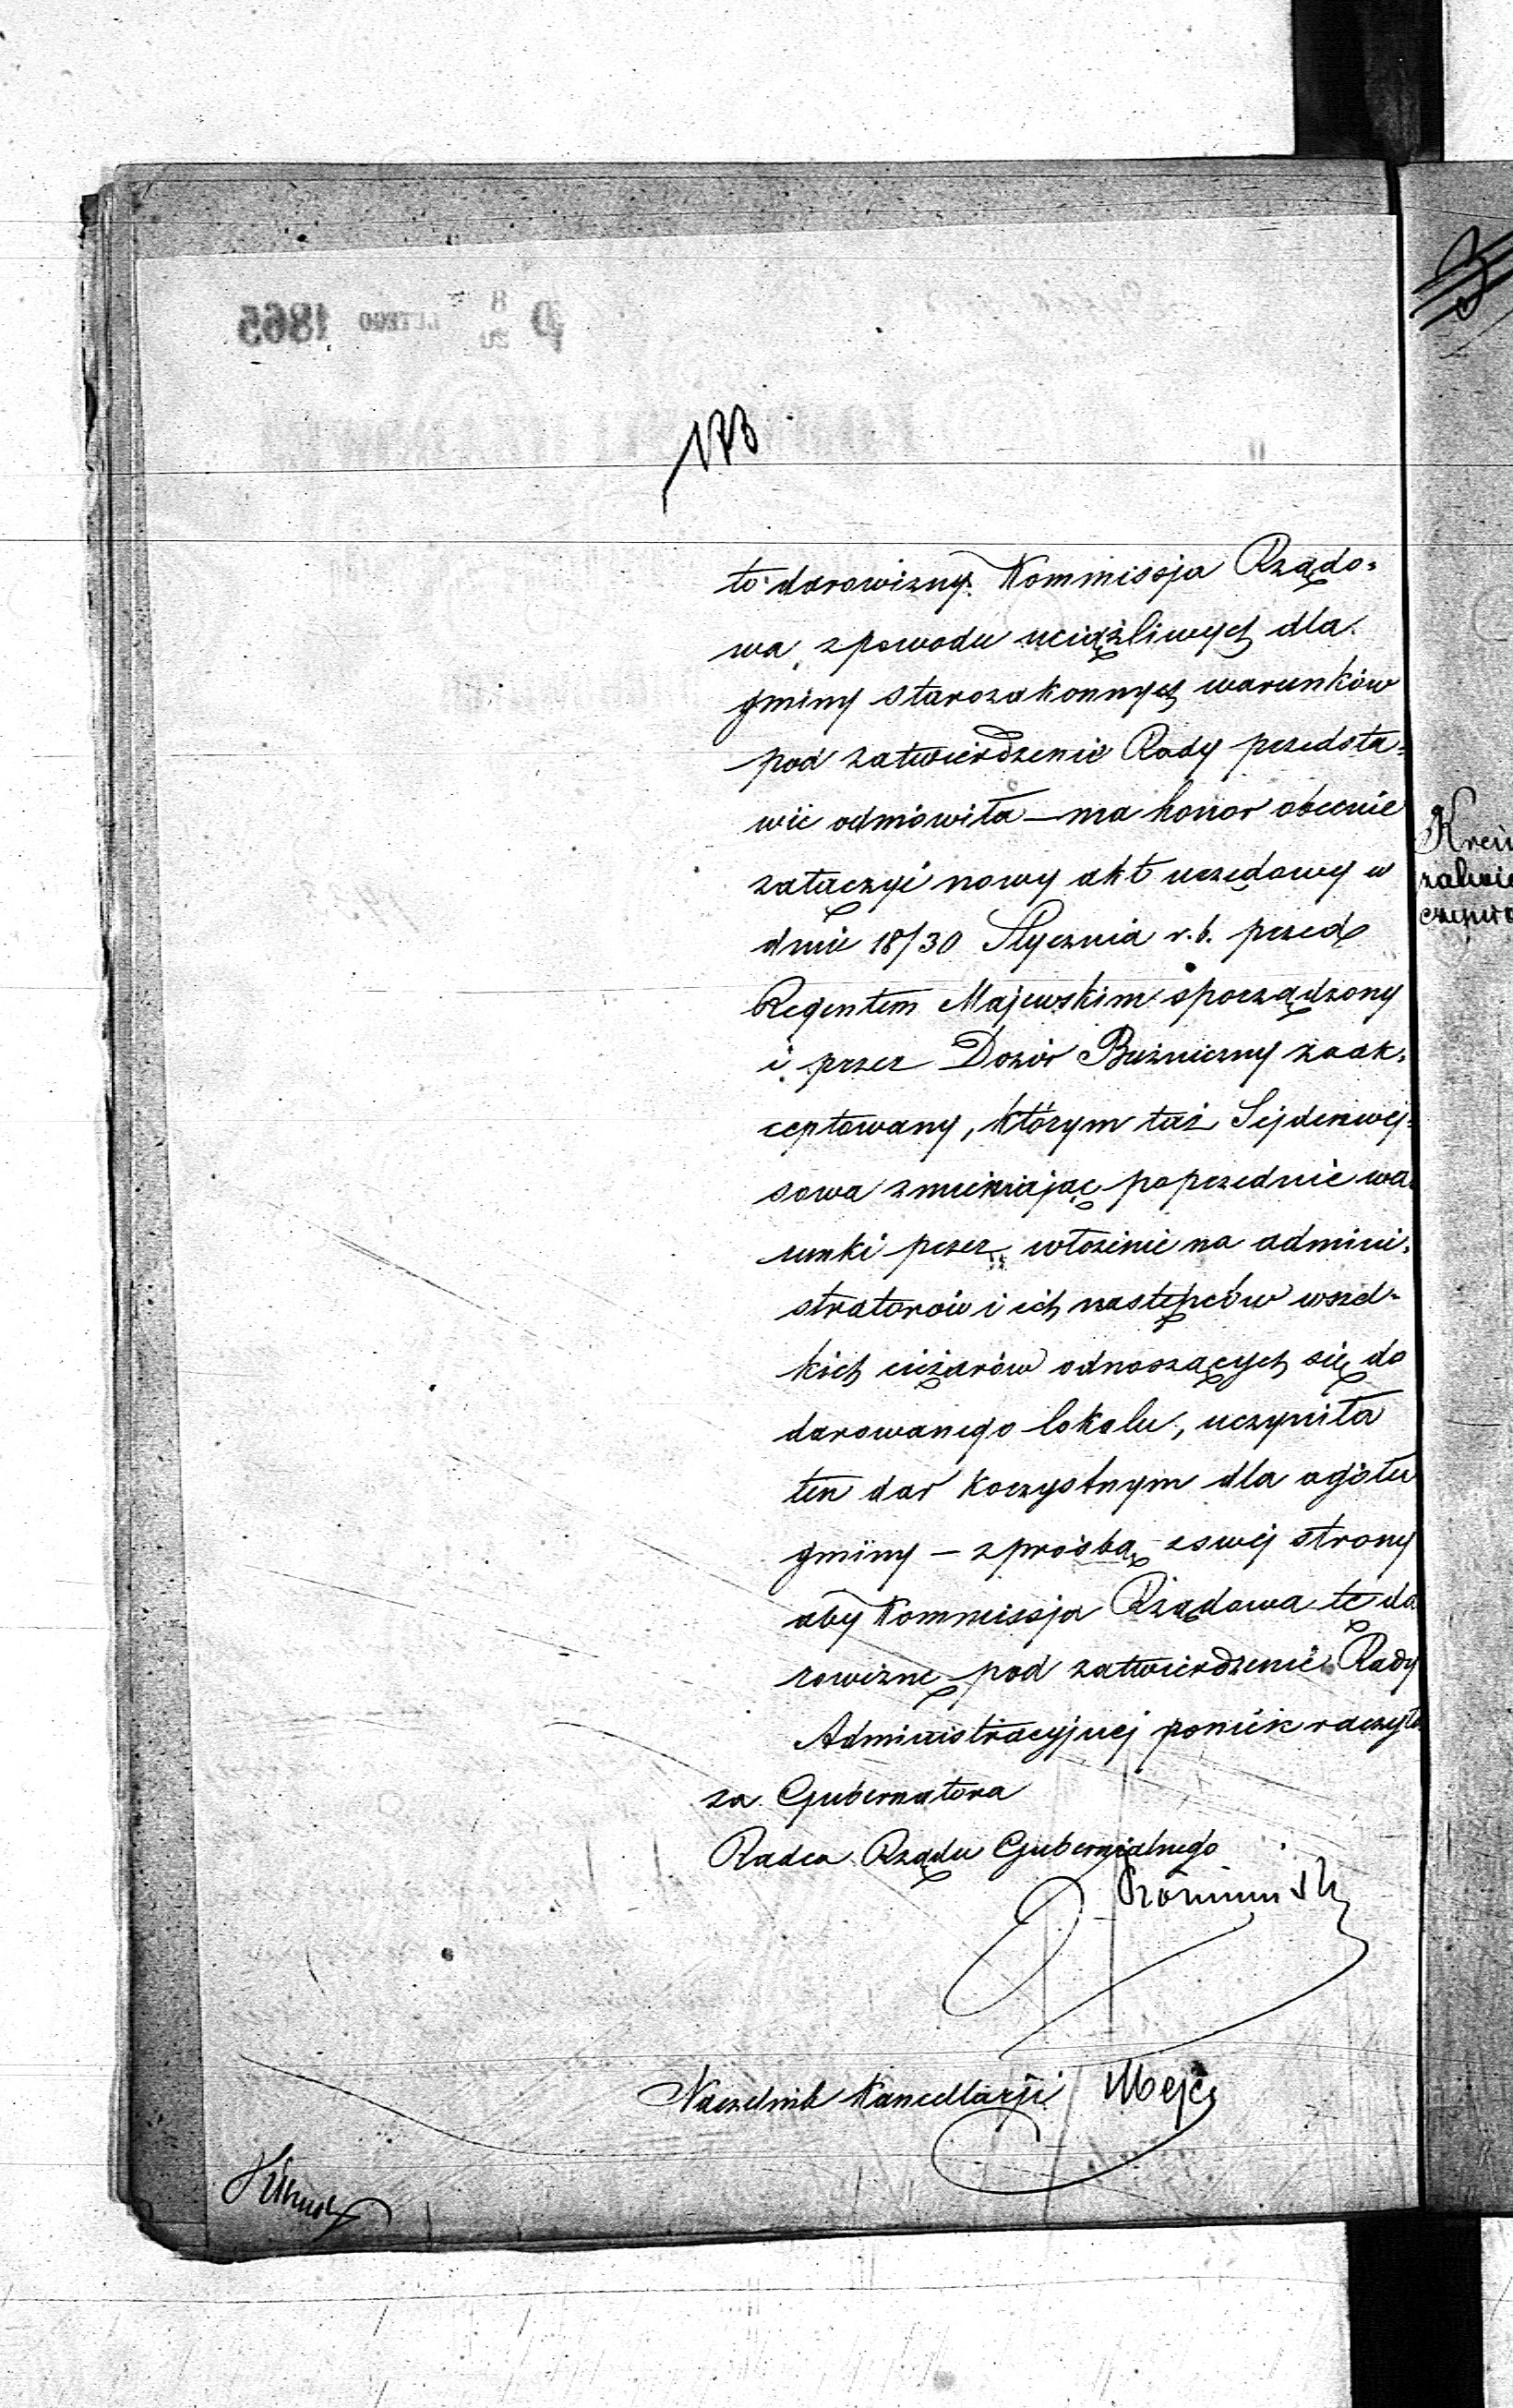 173
to darowizny. Kommissja Rządo=
wa, z powodu uciążliwych dla
gminy starozakonnych warunków
pod zatwierdzenie Rady przedsta=
wić odmówiła — ma honor obecnie
załączyć nowy akt urzędowy w
dniu 18/30 Stycznia r. b. przed
Regentem Majewskim sporządzony
i przez Dozór Bużniczny zaak=
ceptowany, którym taż Sejdenwej=
sowa zmieniając poprzednie wa=
runki przez włożenie na admini=
stratorów i ich następców wszel=
kich ciężarów odnoszących się do
darowanego lokalu, uczyniła
ten dar korzystnym dla ogółu
gminy — z prośbą z swej strony
aby Kommissja Rządowa tę da
rowiznę pod zatwierdzenie Rady
Administracyjnej ponieść raczyła
za Gubernatora
Radca Rządu Gubernialnego
Naczelnik Kancellarji
1865 LUTEGO 8